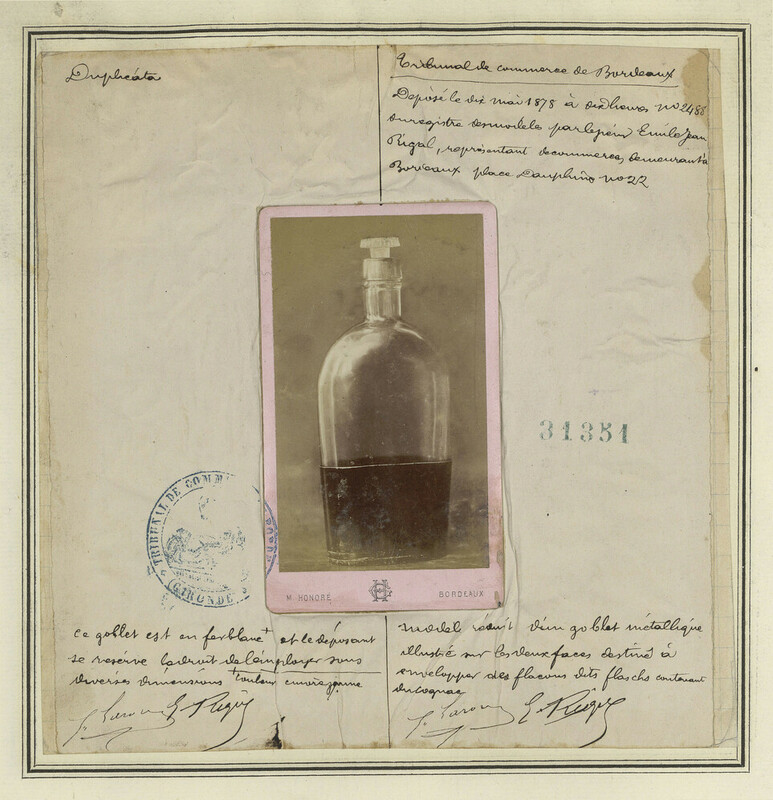 Duplicata
Tribunal de commerce de Bordeaux
Déposé le dix mai 1878 à dix heures no 248
enregistré des modèles par le Emile Jean
Rigal, représentant de commerce, demeurant à
Bordeaux place Dauphine no 22
31351
TRIBUNAL DE COMM
(GIRONDE)
M. HONORÉ
BORDEAUX
ce goblet est en ferblanc + et le déposant
se réserve le droit de l'employer sous
diverses dimensions + couleur cuivre jaune
E. Rigal
model réduit d'un goblet métallique
illustré sur les deux faces destiné à
envelopper des flacons dits flasks contenant
du cognac
E. Rigal